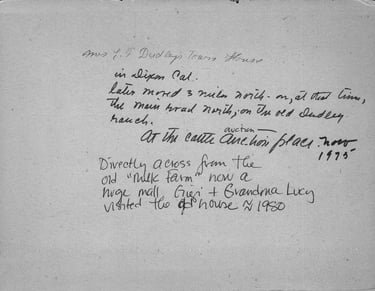 Mrs L. F. Dudleys Town House
in Dixon Cal.
later moved 3 miles north - on, at that time,
the main road north, on the old Dudley
ranch.
auction
At the cattle Auction place. now
1975
Directly across from the
old "Milk Farm" now a
huge mall, Gigi + Grandma Lucy
visited the house ≈ 1980